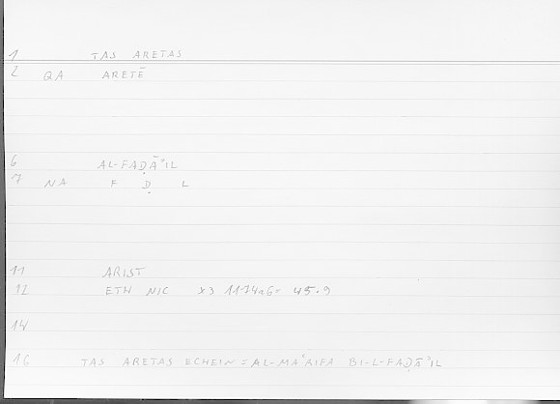 1 TAS ARETAS
2 QA ARETĒ
6 AL-FAḌĀʾIL
7 NA F Ḍ L
11 ARIST
12 ETH NIC X3 1174a6= 45.9
14
16 TAS ARETAS ECHEIN = AL-MAʿRIFA BI-L-FAḌĀʾIL